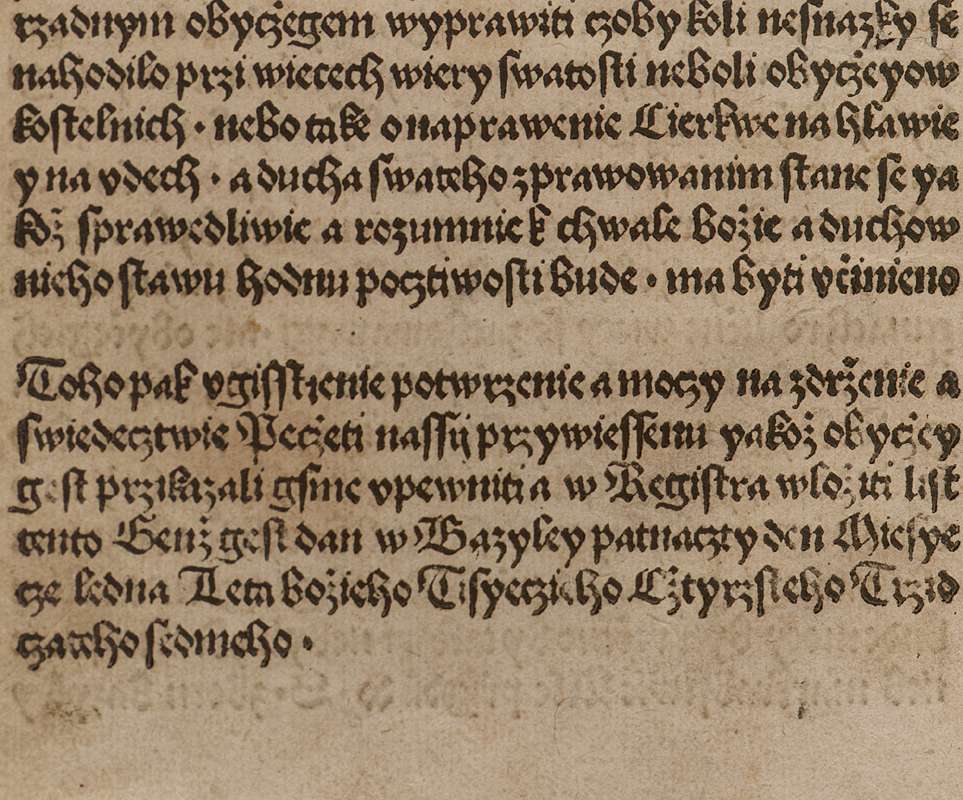 rzadnym obyczegem wyprawiti czoby koli nesnazky se
nahodilo przi wiecech wiery swatosti neboli obyczeyow
kostelnich · nebo take o naprawenie Cierkwe na hlawie
y na vdech · a ducha swateho zprawowanim stane se ya
kož sprawedliwie a rozumnie k chwale božie a duchow
nieho stawu hodnu pocztiwosti bude · ma byti včinieno
Toho pak vgisstienie potwrzenie a moczy na zdrženie a
swiedecztwie Peczeti nassij przywiessenu yakož obyczey
gest przikazali gsme vpewniti a w Registra wložiti list
tento Genž gest dan w Bazyley patnaczty den Miesye
cze ledna Leta božieho Tisyeczieho Cžtyrzsteho Trzid
czateho sedmeho ·